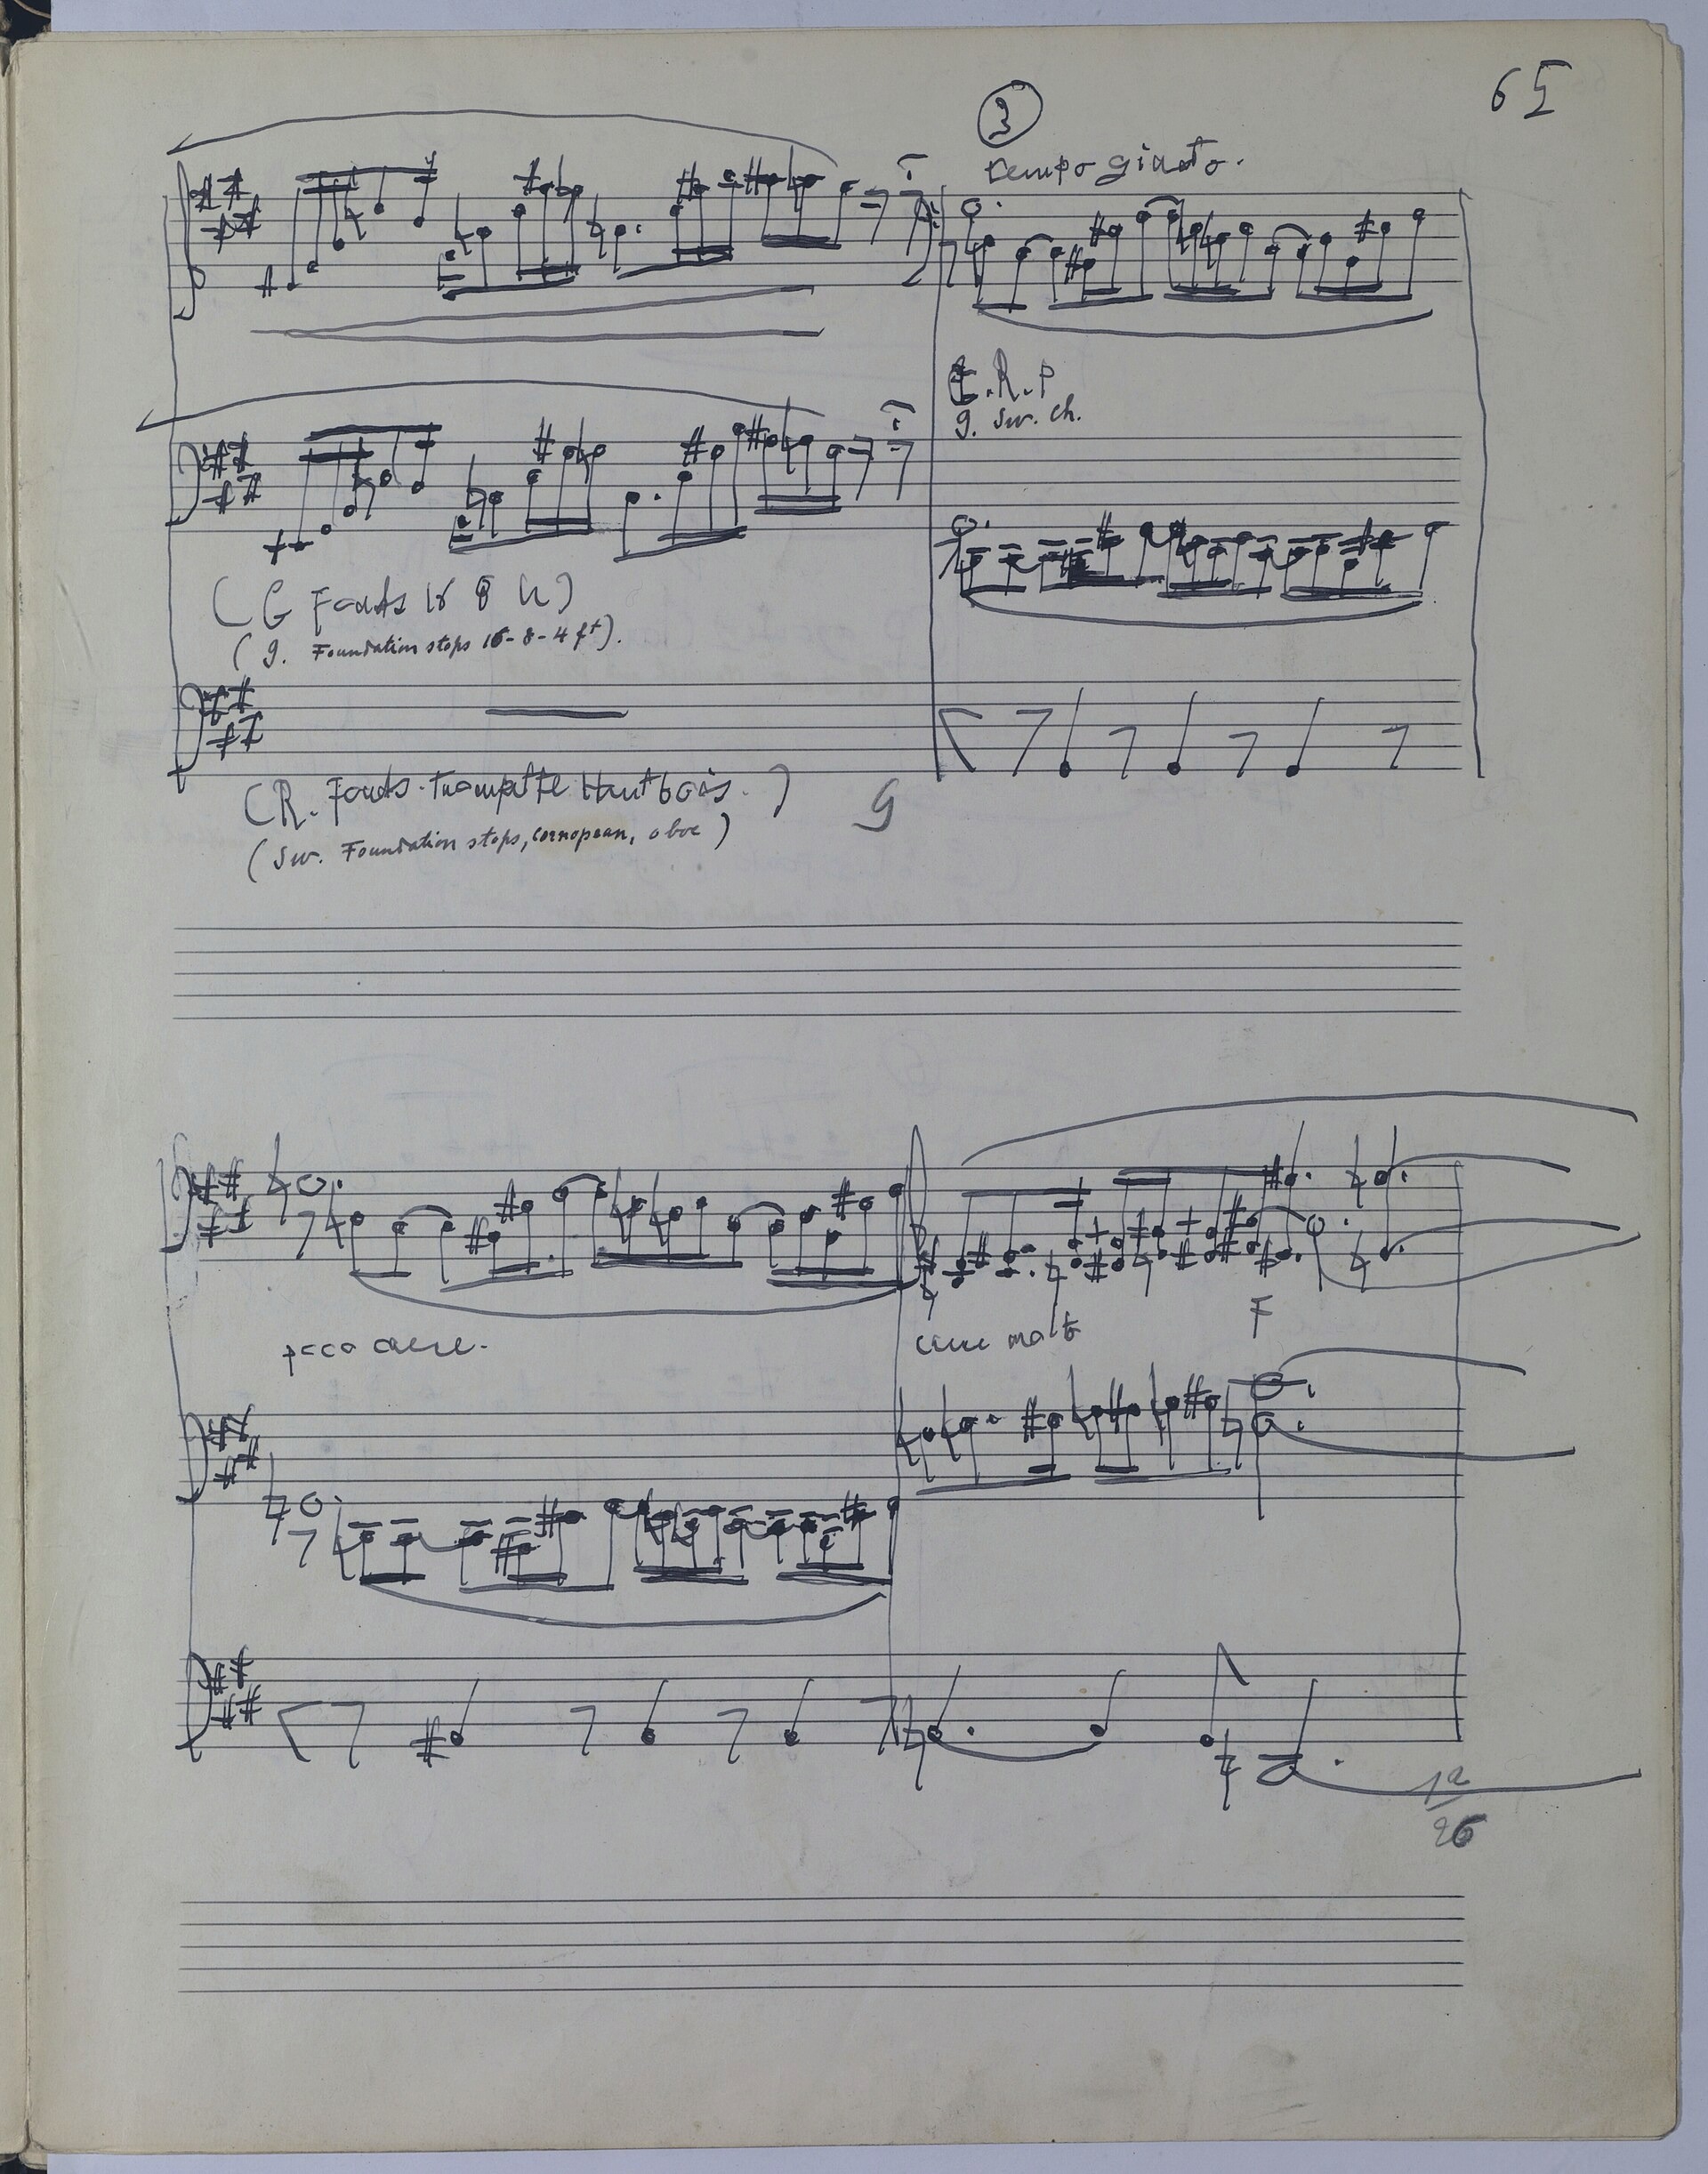 65
3
tempo giusto.
G.R.P
g. Sw. ch.
(G Fonds 16 8 4)
(g. Foundation stops 16-8-4 ft).
(R. Fonds. Trompette Hautbois.)
(Sw. Foundation stops, cornopean, oboe)
g
poco cresc.
cresc molto
F
26